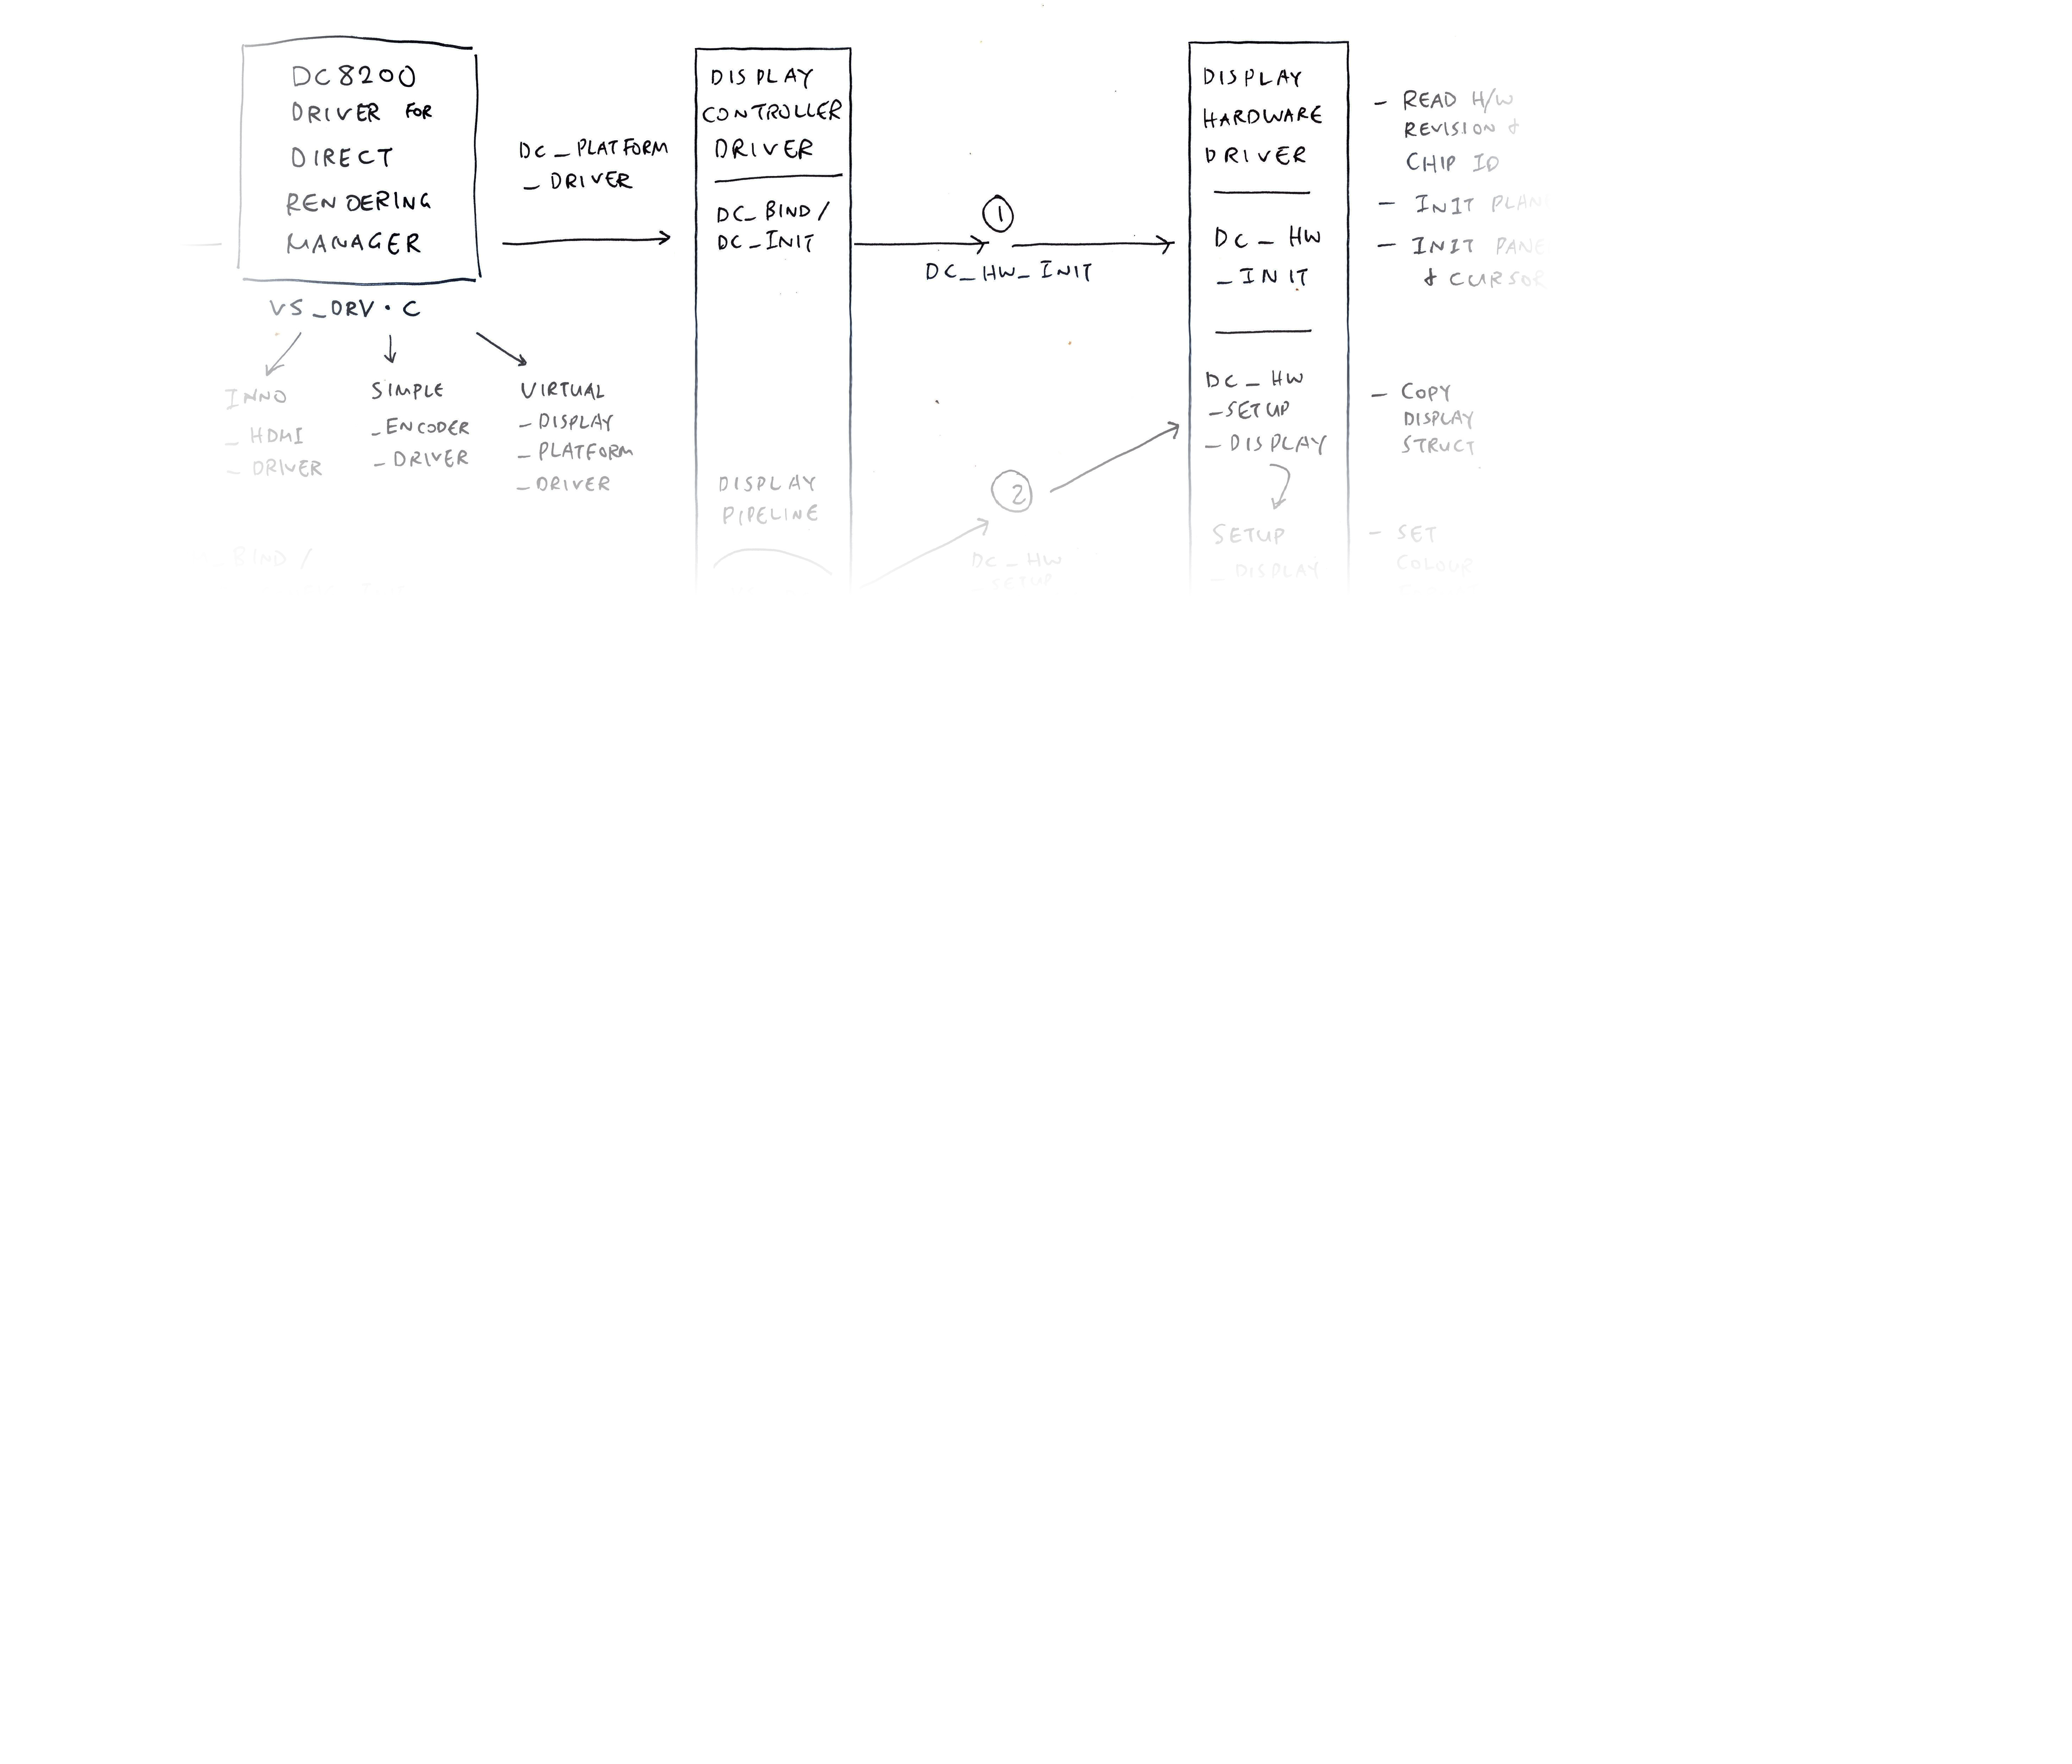 DC8200
DRIVER FOR
DIRECT
RENDERING
MANAGER
VS_DRV.C
INNO
_ HDMI
_ DRIVER
SIMPLE
_ENCODER
_ DRIVER
VIRTUAL
_ DISPLAY
_ PLATFORM
_ DRIVER
BIND /
DC_PLATFORM
_ DRIVER
DISPLAY
CONTROLLER
DRIVER
DC_BIND /
DC_INIT
DISPLAY
PIPELINE
1
DC_HW_INIT
2
DC_HW
SETUP
DISPLAY
HARDWARE
DRIVER
DC_HW
_INIT
DC_HW
_SETUP
_DISPLAY
SETUP
_ DISPLAY
- READ H/W
REVISION &
CHIP ID
- INIT PLAN
- INIT PANE
& CURSOR
- COPY
DISPLAY
STRUCT
- SET
COLOUR